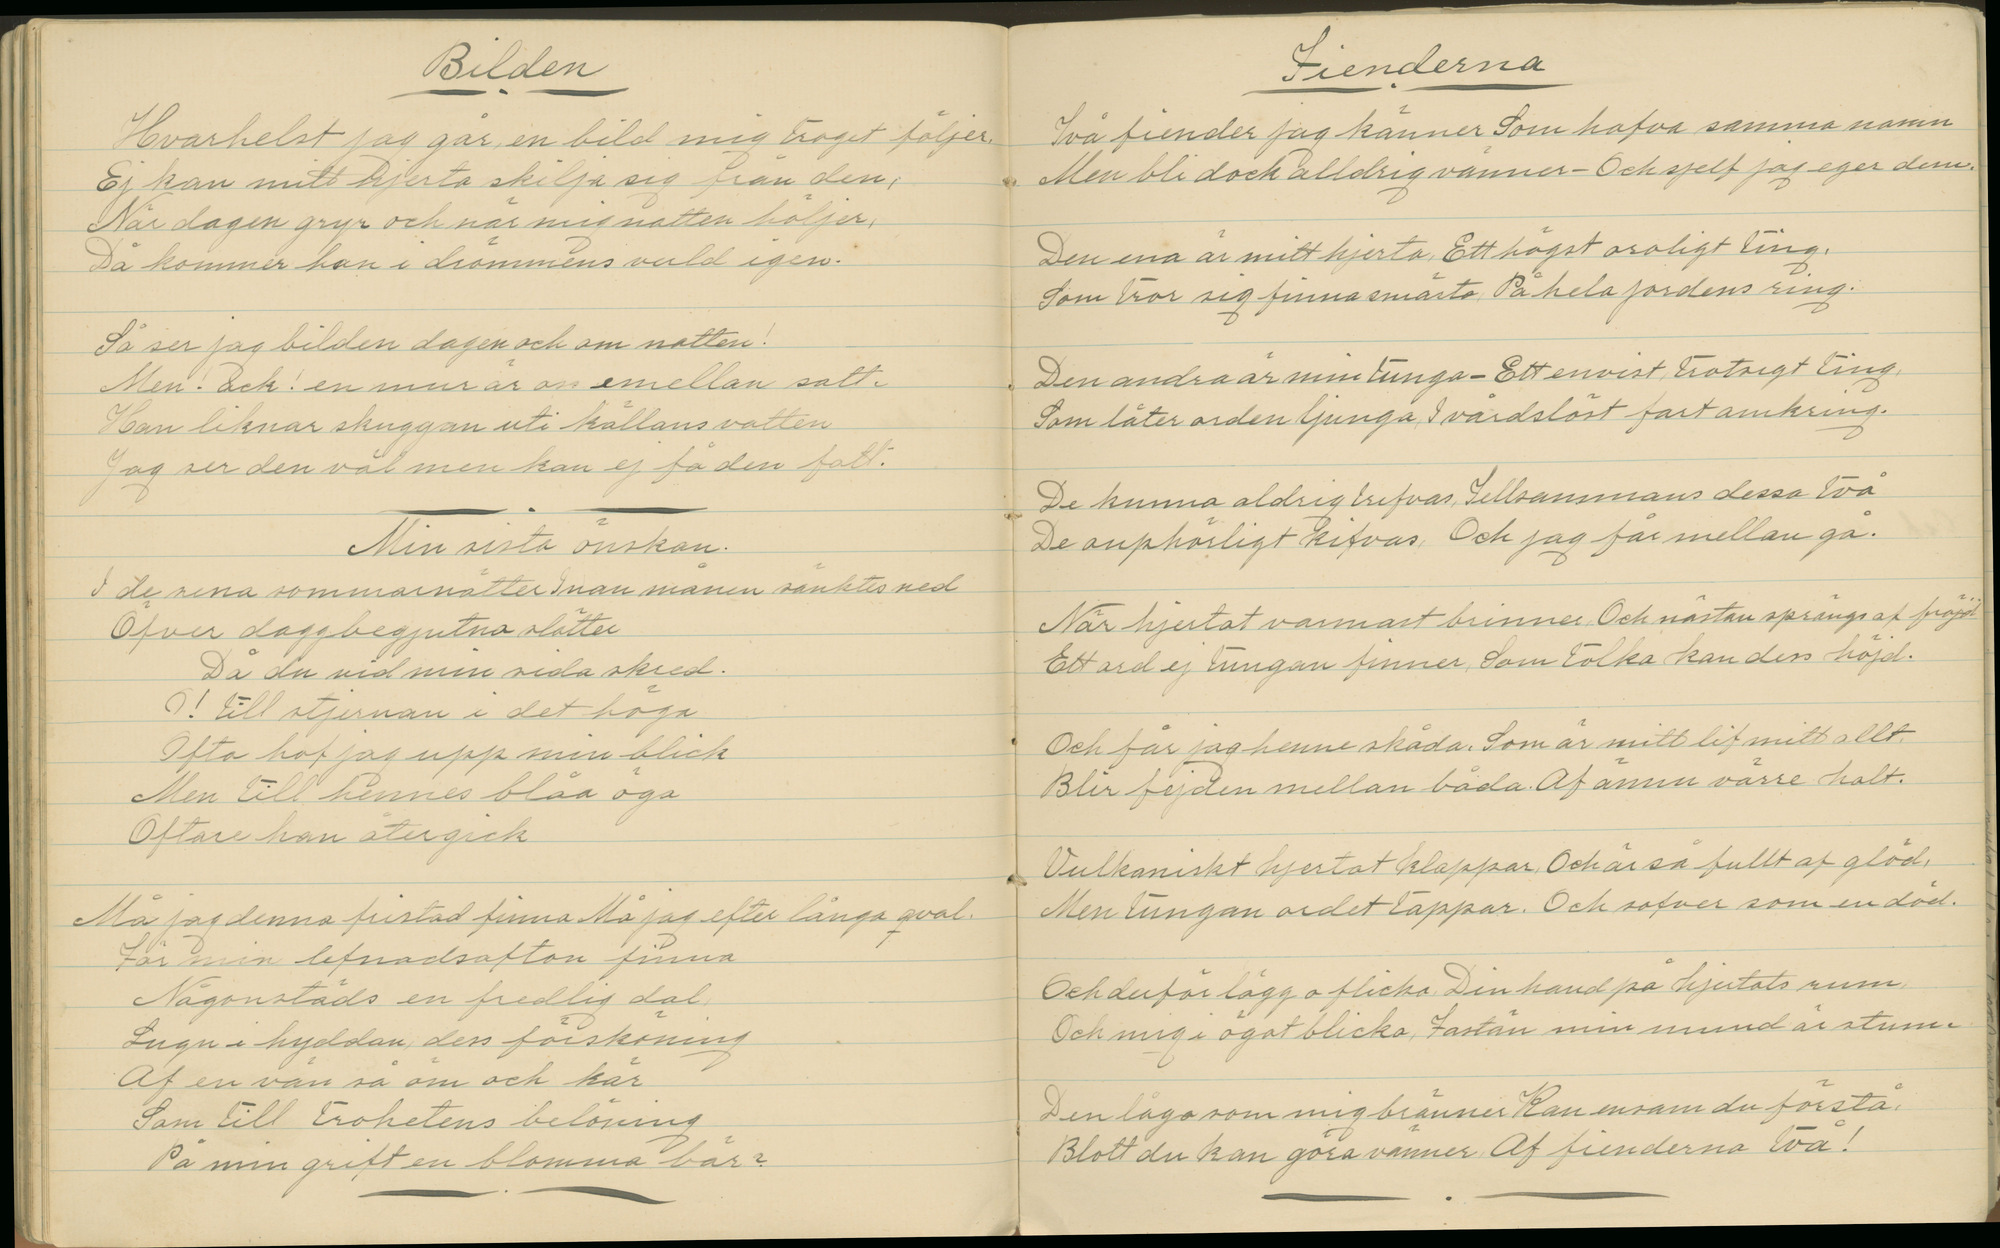 Bilden
Hvarhelst jag går, en bild mig troget följer,
Ej kan mitt hjerta skilja sig från den,
När dagen gryr och när mig natten höljer,
Då kommer han i drömmens verld igen.
Så ser jag bilden dagen och om natten!
Men! Ack! en mur är oss emellan satt.
Han liknar skuggan uti källans vatten
Jag ser den väl men kan ej få den fatt.
Min sista önskan.
I de sena sommarnätter Innan månen sänktes ned
Öfver daggbegjutna slätter
Då du vid min sida skred.
O! till stjernan i det höga
Ofta hof jag upp min blick
Men till hennes blåa öga
Oftare han återgick
Må jag denna fristad finna Må jag efter långa qval.
För min lefnadsafton finna
Någonstäds en fredlig dal,
Lugn i hyddan, dess förskoning
Af en vän så öm och kär
Som till trohetens belöning
På min grift en blomma bär?
Fienderna
Två fiender jag känner Som hafva samma namn
Men bli dock alldrig vänner – Och sjelf jag eger dem.
Den ena är mitt hjerta, Ett högst oroligt ting.
Som tror sig finna smärta, På hela jordens ring.
Den andra är min tunga – Ett envist, trotsigt ting,
Som låter orden ljunga, I vårdslöst fart omkring.
De kunna aldrig trifvas, Tillsammans dessa två
De ouphörligt kifvas, Och jag får mellan gå.
När hjertat varmast brinner, Och nästan sprängs af fröjd
Ett ord ej tungan finner, Som tolka kan dess höjd.
Och får jag henne skåda, Som är mitt lif mitt allt.
Blir fejden mellan båda. Af ännu värre halt.
Vulkaniskt hjertat klappar, Och är så fullt af glöd,
Men tungan ordet tappar. Och sofver som en död.
Och derför lägg o flicka, Din hand på hjertats rum.
Och mig i ögat blicka, Fastän min mund är stum.
Den låga som mig bränner Kan ensam du förstå.
Blott du kan göra vänner, Af fienderna två!